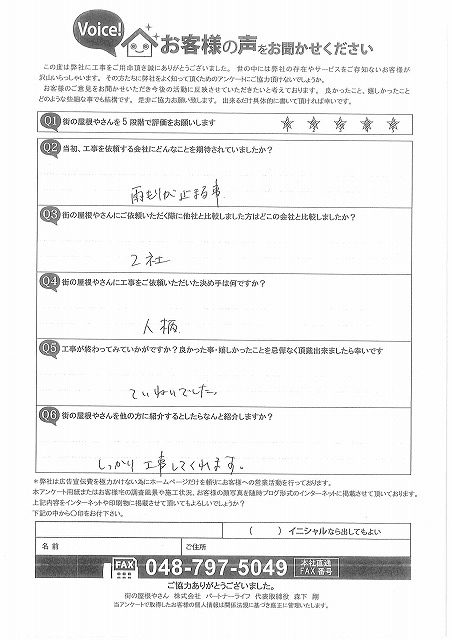 Voice! お客様の声をお聞かせください
この度は弊社に工事をご用命頂き誠にありがとうございました。 世の中には弊社の存在やサービスをご存知ないお客様が
沢山いらっしゃいます。 その方たちに弊社をよく知って頂くためのアンケートにご協力頂けないでしょうか。
お客様のご意見をお聞かせいただき今後の活動に反映させていただきたいと考えております。 良かったこと、嬉しかったこと
どのような些細な事でも結構です。 是非ご協力お願い致します。 出来るだけ具体的に書いて頂ければ幸いです。
Q1 街の屋根やさんを5段階で評価をお願いします ☆ ☆ ☆ ☆ ☆
Q2 当初、工事を依頼する会社にどんなことを期待されていましたか?
雨もりが止まる事
Q3 街の屋根やさんにご依頼いただく際に他社と比較しました方はどこの会社と比較しましたか?
2社
Q4 街の屋根やさんに工事をご依頼いただいた決め手は何ですか?
人柄
Q5 工事が終わってみていかがですか?良かった事・嬉しかったことを忌憚なく頂戴出来ましたら幸いです
ていねいでした。
Q6 街の屋根やさんを他の方に紹介するとしたらなんと紹介しますか?
しっかり工事してくれます。
*弊社は広告宣伝費を極力かけない為にホームページだけを頼りにお客様への営業活動を行っております。
本アンケート用紙またはお客様宅の調査風景や施工状況、お客様の顔写真を随時ブログ形式のインターネットに掲載させて頂いております。
上記内容をインターネットや印刷物に掲載させて頂いてもよろしいでしょうか?
下記の中から○印をお付下さい。
( ) イニシャルなら出してもよい
名前 ご住所
FAX 048-797-5049 本社直通 FAX番号
ご協力ありがとうございました。
街の屋根やさん 株式会社 パートナーライフ 代表取締役 森下 剛
当アンケートで取得したお客様の個人情報は関係法規に基づき厳正に管理いたします。